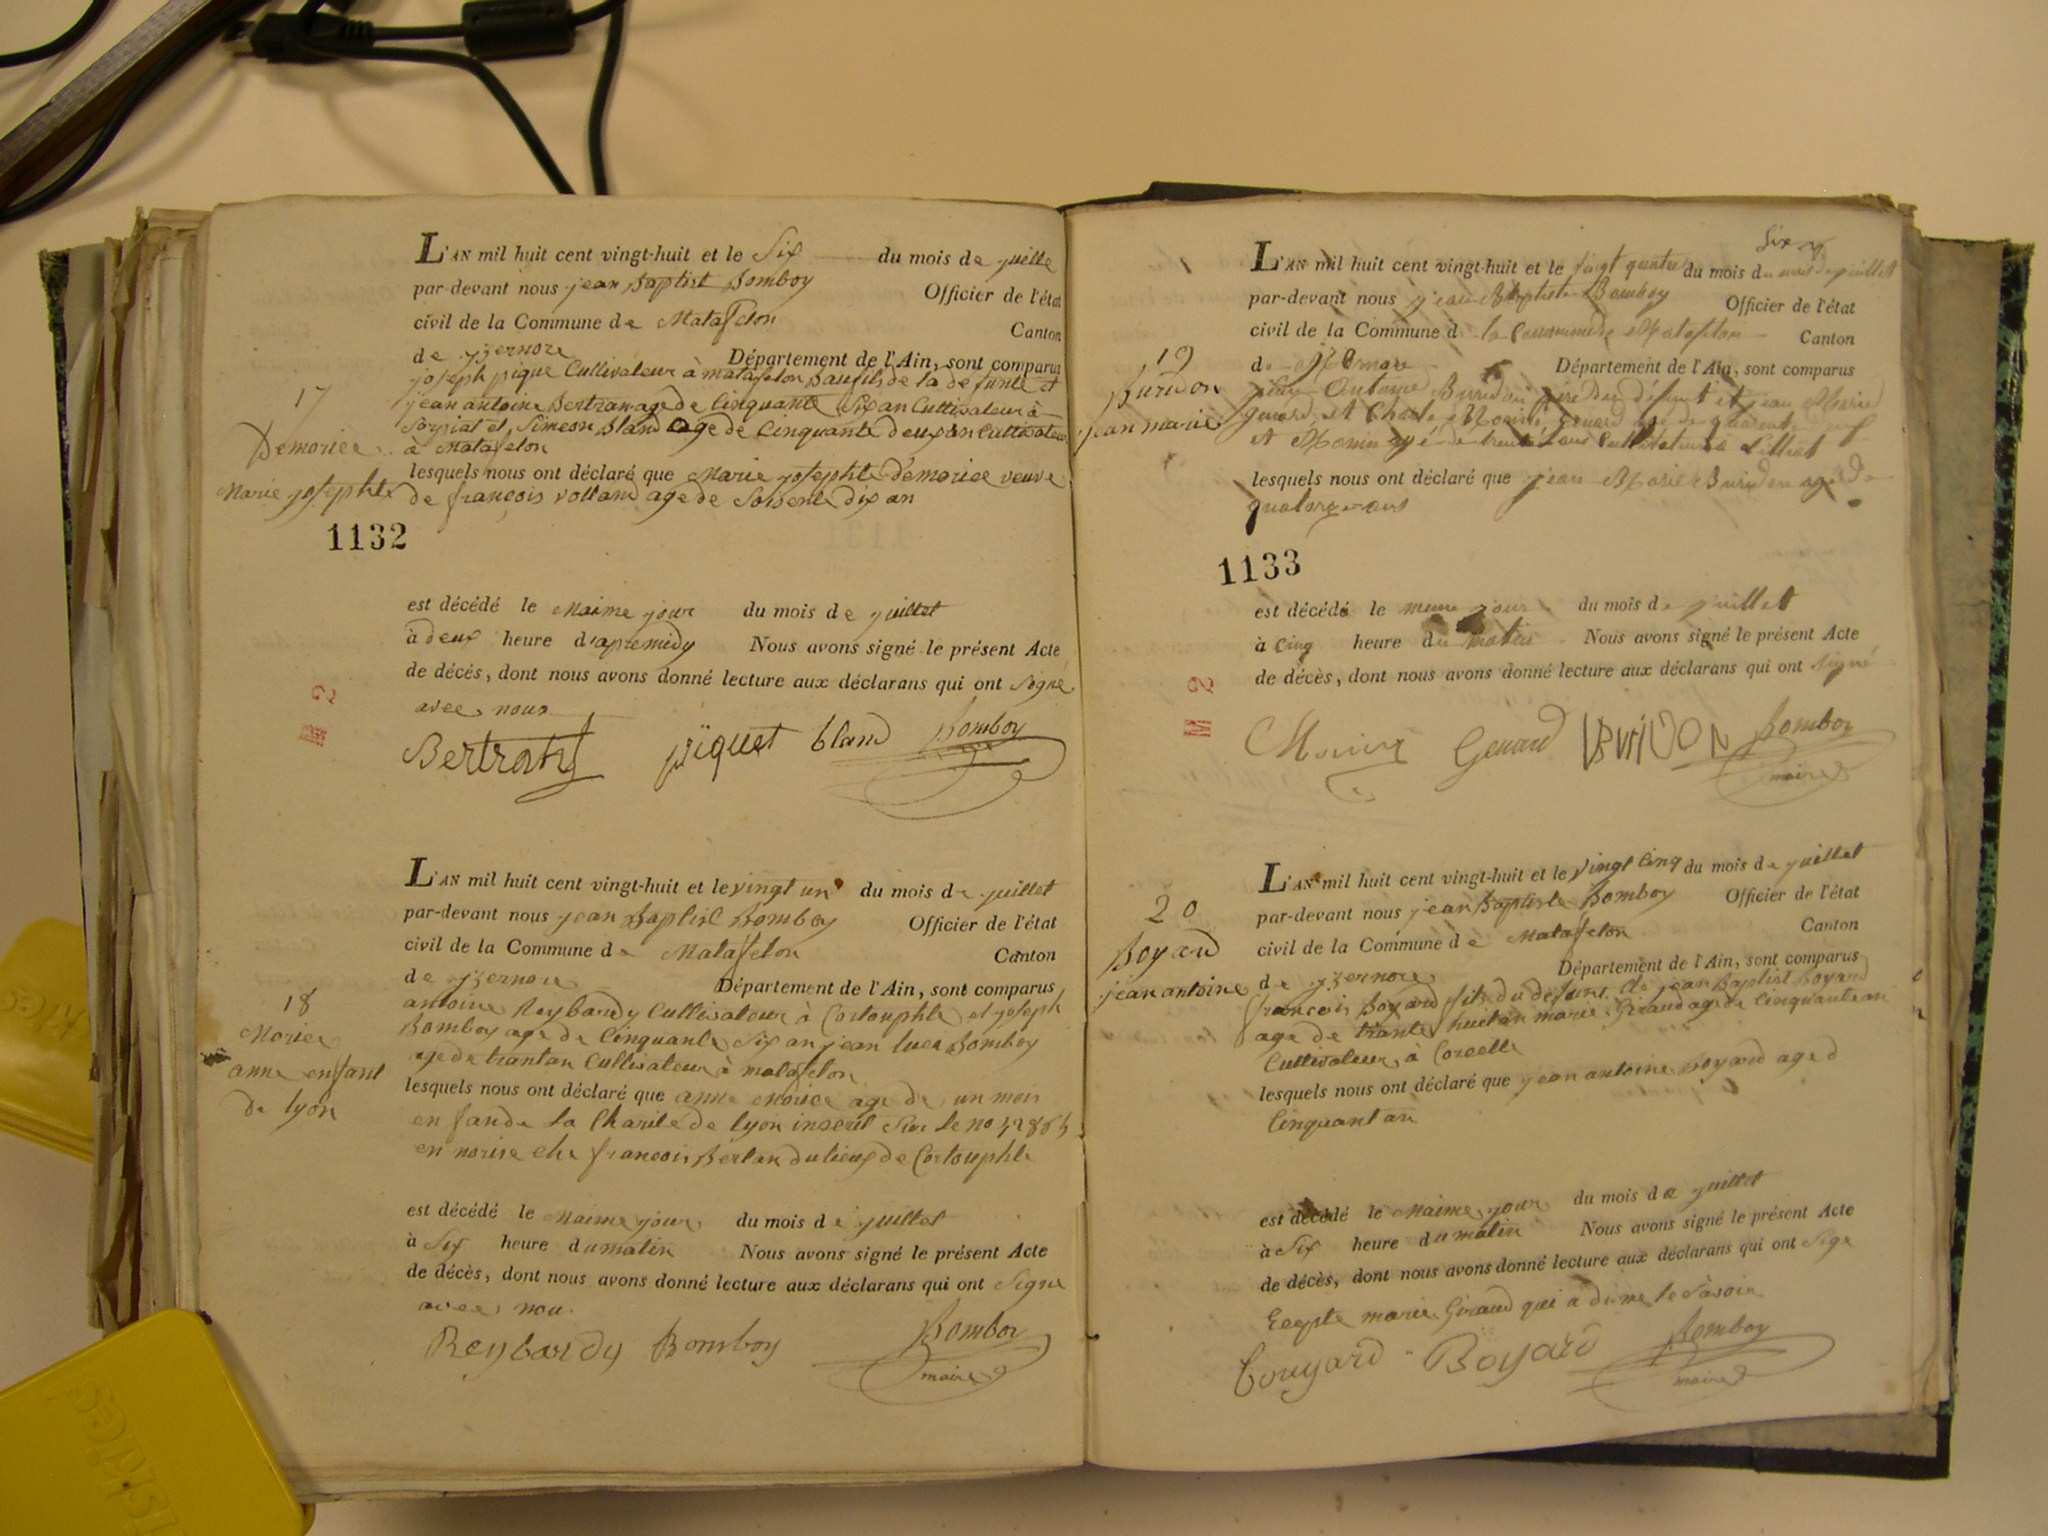 L'AN mil huit cent vingt-huit et le Six du mois de juille
par-devant nous jean Baptist Bomboy Officier de l'état
civil de la Commune de Matafelon Canton
de yzernore Département de l'Ain, sont comparus
joseph pique Cultivateur à matafelon Baufils de la defunte et
jean antoine Bertran age de Cinquante Six an Cultivateur à
Soysiat et Simeon bland age de Cinquante deux an Cultivateur
à Matafelon
17
Demorice
Marie josephte
lesquels nous ont déclaré que Marie josephte demorice veuve
de françois volland age de Soisente dix an
1132
est décédé le Maime jour du mois de juillet
à deux heure d'apremidy Nous avons signé le présent Acte
de décès, dont nous avons donné lecture aux déclarans qui ont Signé
avec nous
Bertrand piquet bland Bomboy
M 2
L'AN mil huit cent vingt-huit et le vingt un du mois de juillet
par-devant nous jean Baptist Bomboy Officier de l'état
civil de la Commune de Matafelon Canton
de yzernore Département de l'Ain, sont comparus
antoine Reybardy Cultivateur à Cortouphle et joseph
Bomboy age de Cinquante Six an jean luca Bomboy
age de trantan Cultivateur à matafelon
18
Morice
anne enfant
de lyon
lesquels nous ont déclaré que anne Morice age de un mois
enfan de La Charité de lyon inscrit Sur le no
en norise che francois Bertan du lieux de Cortouphle
est décédé le Maime jour du mois de juillet
à Six heure du matin Nous avons signé le présent Acte
de décès, dont nous avons donné lecture aux déclarans qui ont Signe
avec nou
Reybardy Bomboy Bomboy
maire
L'AN mil huit cent vingt-huit et le vingt quatre du mois de juillet
par-devant nous jean Baptiste Bomboy Officier de l'état
civil de la Commune d la Commune de Matafelon Canton
d Département de l'Ain, sont comparus
jean Antoine Buridon père du défunt et jean
19
Buridon
jean marie
lesquels nous ont déclaré que jean Marie Buridon agé de
quatorze ans
1133
est décédé le meme jour du mois de juillet
à Cinq heure du matin Nous avons signé le présent Acte
de décès, dont nous avons donné lecture aux déclarans qui ont signé
Genard BuriDON Bomboy
maire
M 2
L'AN mil huit cent vingt-huit et le vingt Cinq du mois de juillet
par-devant nous jean Baptiste Bomboy Officier de l'état
civil de la Commune de Matafelon Canton
de yzernore Département de l'Ain, sont comparus
francois Boyard fils du defunt de jean Baptist Boyard
age de trante huet an marie Giraud age de Cinquante an
Cultivateur à Corcelle
20
Boyard
jean antoine
lesquels nous ont déclaré que jean antoine Boyard age d
Cinquant an
est décédé le Maime jour du mois de juillet
à Six heure du matin Nous avons signé le présent Acte
de décès, dont nous avons donné lecture aux déclarans qui ont Signe
Ecepte marie Giraud qui a di ne le Savoir
Bouyard Boyard Bomboy
maire